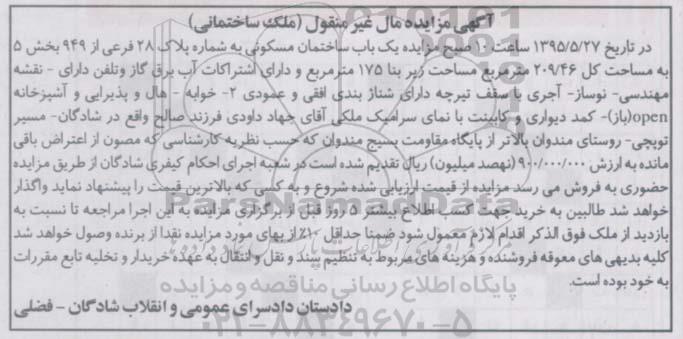 آگهی مزایده مال غیر منقول (ملک ساختمانی)
در تاریخ ۱۳۹۵/۵/۲۷ ساعت ۱۰ صبح مزایده یک باب ساختمان مسکونی به شماره پلاک ۲۸ فرعی از ۹۴۹ بخش ۵
به مساحت کل ۲۰۹/۴۶ مترمربع مساحت زیر بنا ۱۷۵ مترمربع و دارای اشتراکات آب برق گاز وتلفن دارای - نقشه
مهندسی- نوساز- آجری با سقف تیرچه دارای شناژ بندی افقی و عمودی ۲- خوابه - هال و پذیرایی و آشپزخانه
open(باز)- کمد دیواری و کابینت با نمای سرامیک ملکی آقای جهاد داودی فرزند صالح واقع در شادگان- مسیر
توپچی- روستای مندوان بالاتر از پایگاه مقاومت بسیج مندوان که حسب نظریه کارشناسی که مصون از اعتراض باقی
مانده به ارزش ۹۰۰/۰۰۰/۰۰۰ (نهصد میلیون) ریال تقدیم شده است در شعبه اجرای احکام کیفری شادگان از طریق مزایده
حضوری به فروش می رسد مزایده از قیمت ارزیابی شده شروع و به کسی که بالاترین قیمت را پیشنهاد نماید واگذار
خواهد شد طالبین به خرید جهت کسب اطلاع بیشتر ۵ روز قبل از برگزاری مزایده به این اجرا مراجعه تا نسبت به
بازدید از ملک فوق الذکر اقدام لازم معمول شود ضمنا حداقل ۱۰٪ از بهای مورد مزایده نقدا از برنده وصول خواهد شد
کلیه بدیهی های معوقه فروشنده و هزینه های مربوط به تنظیم سند و نقل و انتقال به عهده خریدار و تخلیه تابع مقررات
به خود بوده است.
دادستان دادسرای عمومی و انقلاب شادگان - فضلی
ParsNamadData
پایگاه اطلاع رسانی مناقصه و مزایده
۰۲۱-۸۸۳۴۹۶۷۰-۵